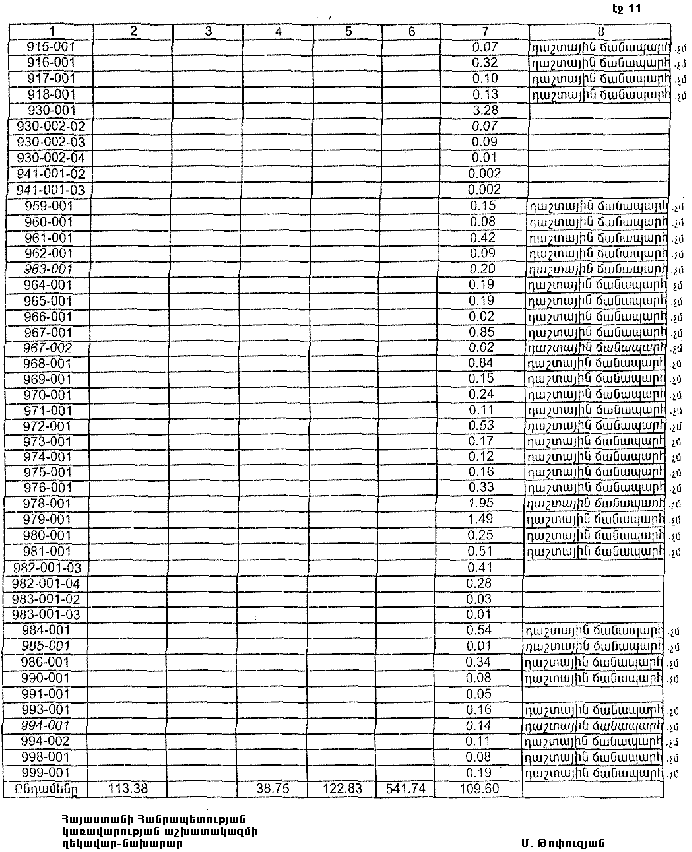 Էջ 11
1 2 3 4 5 6 7 8
915-001 0.07 դաշտային ճանապարհ .չմ
916-001 0.32 դաշտային ճանապարհ .չմ
917-001 0.10 դաշտային ճանապարհ .չմ
918-001 0.13 դաշտային ճանապարհ .չմ
930-001 3.28
930-002-02 0.07
930-002-03 0.09
930-002-04 0.01
941-001-02 0.002
941-001-03 0.002
959-001 0.15 դաշտային ճանապարհ .չմ
960-001 0.08 դաշտային ճանապարհ .չմ
961-001 0.42 դաշտային ճանապարհ .չմ
962-001 0.09 դաշտային ճանապարհ .չմ
963-001 0.20 դաշտային ճանապարհ .չմ
964-001 0.19 դաշտային ճանապարհ .չմ
965-001 0.19 դաշտային ճանապարհ .չմ
966-001 0.02 դաշտային ճանապարհ .չմ
967-001 0.85 դաշտային ճանապարհ .չմ
967-002 0.02 դաշտային ճանապարհ .չմ
968-001 0.84 դաշտային ճանապարհ .չմ
969-001 0.15 դաշտային ճանապարհ .չմ
970-001 0.24 դաշտային ճանապարհ .չմ
971-001 0.11 դաշտային ճանապարհ .չմ
972-001 0.53 դաշտային ճանապարհ .չմ
973-001 0.17 դաշտային ճանապարհ .չմ
974-001 0.12 դաշտային ճանապարհ .չմ
975-001 0.16 դաշտային ճանապարհ .չմ
976-001 0.33 դաշտային ճանապարհ .չմ
978-001 1.95 դաշտային ճանապարհ .չմ
979-001 1.49 դաշտային ճանապարհ .չմ
980-001 0.25 դաշտային ճանապարհ .չմ
981-001 0.51 դաշտային ճանապարհ .չմ
982-001-03 0.41
982-001-04 0.28
983-001-02 0.03
983-001-03 0.01
984-001 0.54 դաշտային ճանապարհ .չմ
985-001 0.01 դաշտային ճանապարհ .չմ
986-001 0.34 դաշտային ճանապարհ .չմ
990-001 0.08 դաշտային ճանապարհ .չմ
991-001 0.05
993-001 0.16 դաշտային ճանապարհ .չմ
994-001 0.14 դաշտային ճանապարհ .չմ
994-002 0.11 դաշտային ճանապարհ .չմ
998-001 0.08 դաշտային ճանապարհ .չմ
999-001 0.19 դաշտային ճանապարհ .չմ
Ընդամենը 113.38 38.75 122.83 541.74 109.60
Հայաստանի Հանրապետության
կառավարության աշխատակազմի
ղեկավար-նախարար Մ. Թոփուզյան